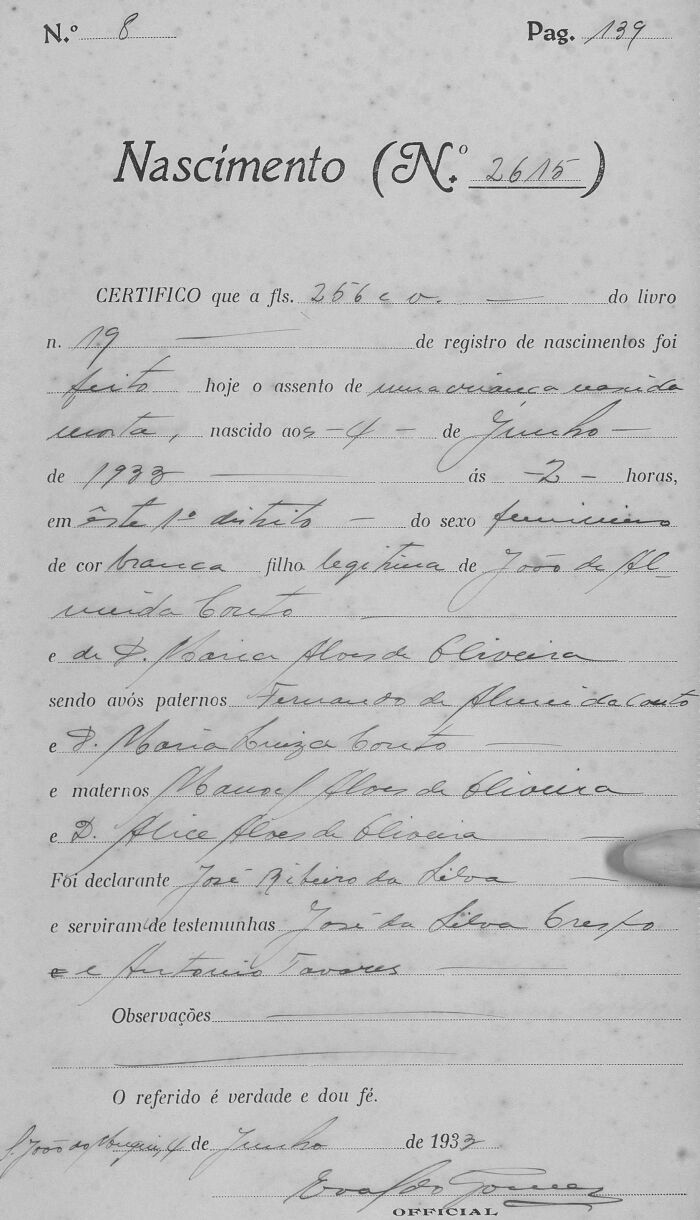 N.º 8 Pag. 139
Nascimento (N.º 2615)
CERTIFICO que a fls. 256 e v. — do livro
n. 19 — de registro de nascimentos foi
feito hoje o assento de uma criança nascida
morta, nascido aos - 4 - de Junho —
de 1933 — ás - 2 - horas,
em êste 1º distrito — do sexo feminino
de cor branca filha legitima de João de Al-
meida Couto —
e de D. Maria Alves de Oliveira
sendo avós paternos Fernando de Almeida Couto
e D. Maria Luiza Couto —
e maternos Manoel Alves de Oliveira
e D. Alice Alves de Oliveira —
Foi declarante José Ribeiro da Silva —
e serviram de testemunhas José da Silva Crespo
e e Antonio Tavares —
Observações —
O referido é verdade e dou fé.
S. João do 4 de Junho de 1933
Evaldo Gomes
OFFICIAL